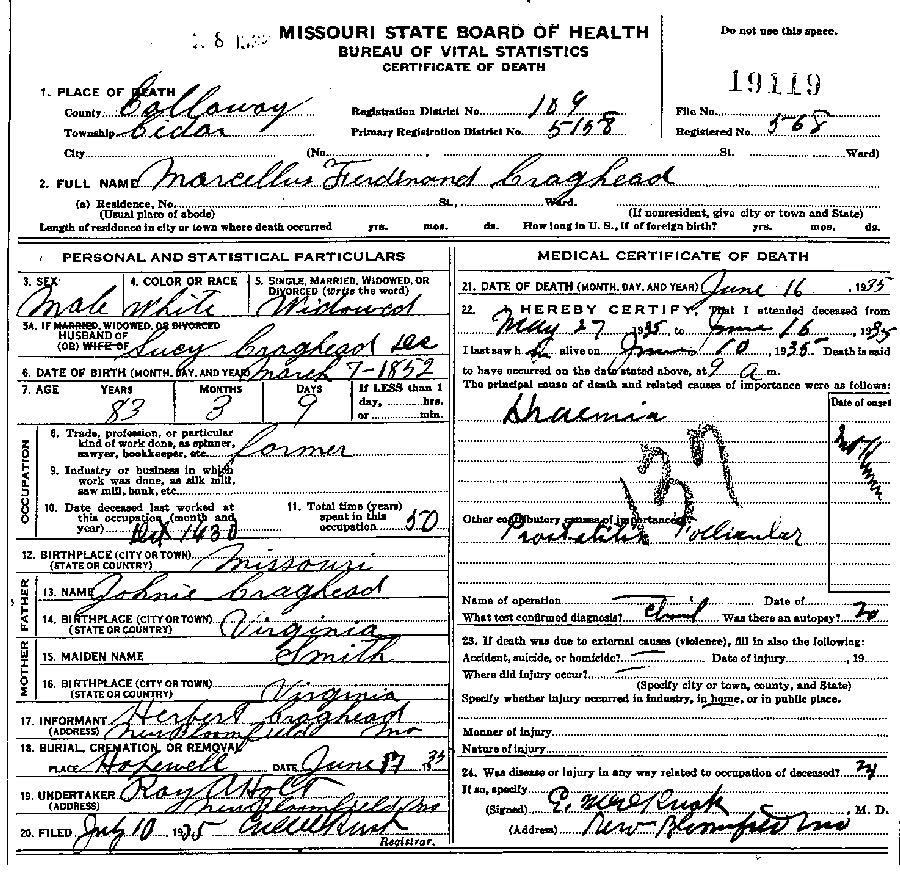 MISSOURI STATE BOARD OF HEALTH
BUREAU OF VITAL STATISTICS
CERTIFICATE OF DEATH
Do not use this space.
19119
1. PLACE OF DEATH
County Callaway Registration District No. 109 File No.
Township Cedar Primary Registration District No. 5158 Registered No. 568
City (No. , St. Ward)
2. FULL NAME Marcellus Ferdinand Craghead
(a) Residence, No. St., Ward.
(Usual place of abode) (If nonresident, give city or town and State)
Length of residence in city or town where death occurred yrs. mos. ds. How long in U. S., if of foreign birth? yrs. mos. ds.
PERSONAL AND STATISTICAL PARTICULARS
3. SEX 4. COLOR OR RACE 5. SINGLE, MARRIED, WIDOWED, OR DIVORCED (write the word)
Male White Widowed
5A. IF MARRIED, WIDOWED, OR DIVORCED
HUSBAND OF
(OR) WIFE OF Lucy Craghead Dec
6. DATE OF BIRTH (MONTH, DAY, AND YEAR) March 7-1852
7. AGE YEARS MONTHS DAYS If LESS than 1 day, hrs. or min.
83 3 9
OCCUPATION
8. Trade, profession, or particular
kind of work done, as spinner,
sawyer, bookkeeper, etc. farmer
9. Industry or business in which
work was done, as silk mill,
saw mill, bank, etc.
10. Date deceased last worked at
this occupation (month and
year) 1930
11. Total time (years)
spent in this
occupation 50
12. BIRTHPLACE (CITY OR TOWN)
(STATE OR COUNTRY) Missouri
FATHER
13. NAME Johnie Craghead
14. BIRTHPLACE (CITY OR TOWN)
(STATE OR COUNTRY) Virginia
MOTHER
15. MAIDEN NAME Smith
16. BIRTHPLACE (CITY OR TOWN)
(STATE OR COUNTRY) Virginia
17. INFORMANT Herbert Craghead
(ADDRESS) New Bloomfield Mo
18. BURIAL, CREMATION, OR REMOVAL
PLACE Hopewell DATE June 17 1935
19. UNDERTAKER Roy A Holt
(ADDRESS) New Bloomfield Mo
20. FILED July 10 1935
Registrar.
MEDICAL CERTIFICATE OF DEATH
21. DATE OF DEATH (MONTH, DAY, AND YEAR) June 16, 1935
22. I HEREBY CERTIFY, That I attended deceased from
May 27 1935 to June 16, 1935
I last saw h alive on June 10, 1935 Death is said
to have occurred on the date stated above, at 9 a m.
The principal cause of death and related causes of importance were as follows:
Date of onset
Uraemia
137
Other contributory causes of importance:
Prostatitis Follicular
Name of operation Date of
What test confirmed diagnosis? Was there an autopsy? no
23. If death was due to external causes (violence), fill in also the following:
Accident, suicide, or homicide? Date of injury , 19
Where did injury occur?
(Specify city or town, county, and State)
Specify whether injury occurred in industry, in home, or in public place.
Manner of injury
Nature of injury
24. Was disease or injury in any way related to occupation of deceased?
If so, specify
(Signed) , M. D.
(Address) New Bloomfield Mo